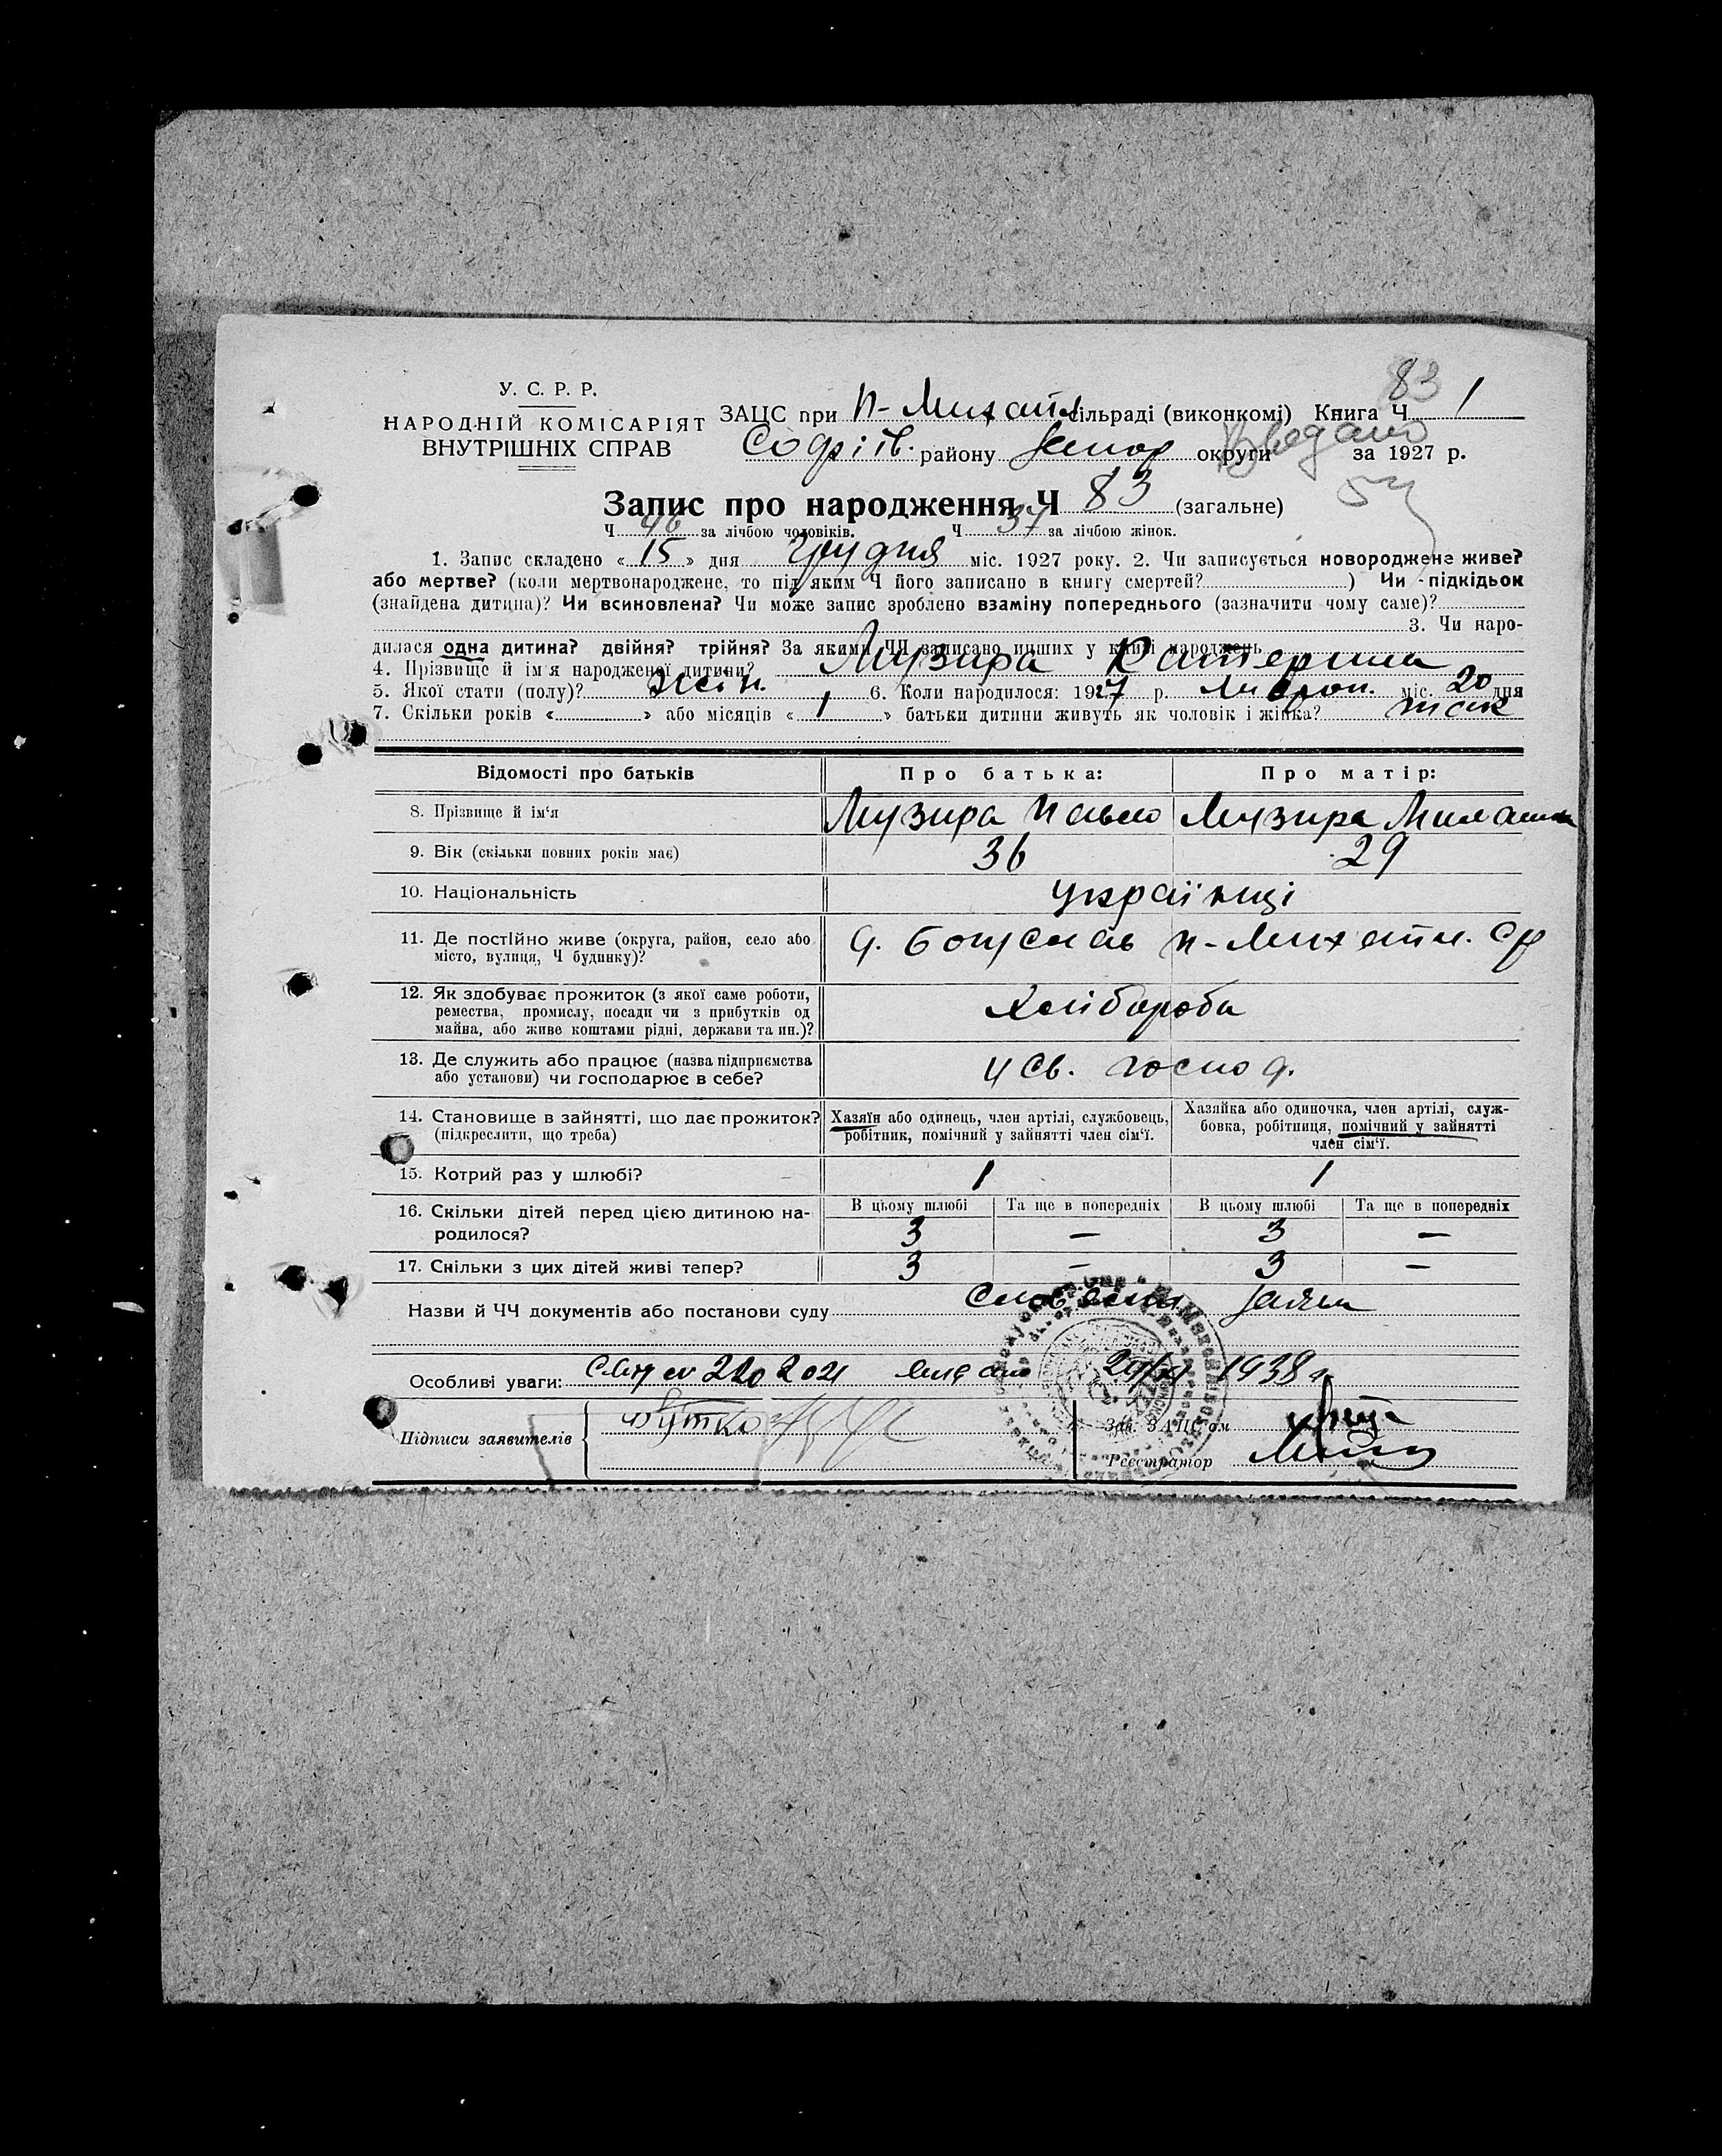 83 1
У. С. Р. Р.
НАРОДНІЙ КОМІСАРІЯТ
ВНУТРІШНІХ СПРАВ
ЗАЦС при сільраді (виконкомі) Книга Ч.
Софіїв. району Запор округи за 1927 р.
Запис про народження Ч 83 (загальне)
Ч 46 за лічбою чоловіків. Ч 37 за лічбою жінок.
1. Запис складено «15» дня Грудня міс. 1927 року. 2. Чи записується новороджене живе?
або мертве? (коли мертвонароджене, то під яким Ч його записано в книгу смертей? ) Чи підкідьок
(знайдена дитина)? Чи всиновлена? Чи може запис зроблено взаміну попереднього (зазначити чому саме)?
3. Чи наро-
дилася одна дитина? двійня? трійня? За якими ЧЧ записано инших у книзі народжень
4. Прізвище й ім'я народженої дитини? Музира Катерина
5. Якої стати (полу)? жін. 6. Коли народилося: 1927 р. міс. 20 дня
7. Скільки років « » або місяців « » батьки дитини живуть як чоловік і жінка?
Відомості про батьків Про батька: Про матір:
8. Прізвище й ім'я Музира Павло Музира
9. Вік (скільки повних років має) 36 29
10. Національність Українці
11. Де постійно живе (округа, район, село або
місто, вулиця, Ч будинку)?
12. Як здобуває прожиток (з якої саме роботи,
ремества, промислу, посади чи з прибутків од
майна, або живе коштами рідні, держави та ин.)?
Хлібороба
13. Де служить або працює (назва підприємства
або установи) чи господарює в себе?
у св. госпо д.
14. Становище в зайнятті, що дає прожиток?
(підкреслити, що треба)
Хазяїн або одинець, член артілі, службовець,
робітник, помічний у зайнятті член сім'ї.
Хазяйка або одиночка, член артілі, служ-
бовка, робітниця, помічний у зайнятті
член сім'ї.
15. Котрий раз у шлюбі? 1 1
В цьому шлюбі Та ще в попередніх В цьому шлюбі Та ще в попередніх
16. Скільки дітей перед цією дитиною на-
родилося?
3 — 3 —
17. Скільки з цих дітей живі тепер? 3 — 3 —
Назви й ЧЧ документів або постанови суду
Особливі уваги: 1938 р.
Підписи заявителів
Зав. ЗАЦС'ом
Реєстратор